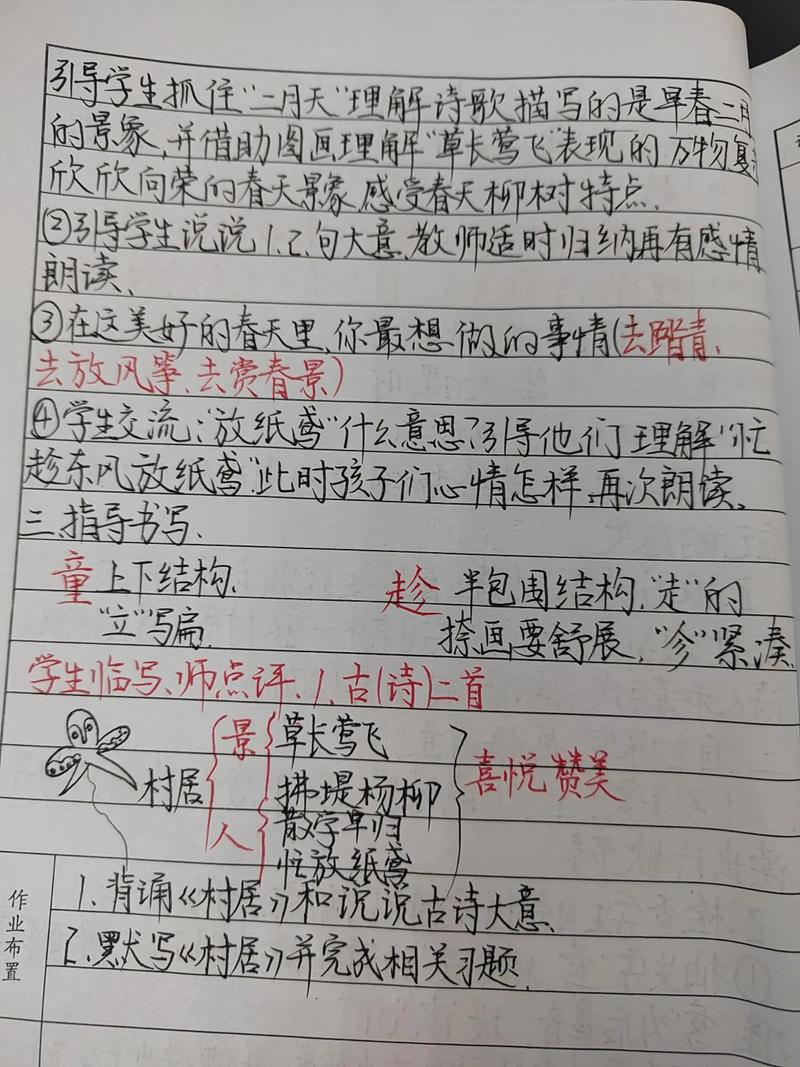 引导学生抓住“二月天”理解诗歌描写的是早春二月
的景象,并借助图画理解“草长莺飞”表现的万物复
欣欣向荣的春天景象.感受春天柳树特点.
②引导学生说说1.2.句大意.教师适时归纳再有感情
朗读.
③在这美好的春天里,你最想做的事情(去踏青、
去放风筝、去赏春景)
④学生交流:“放纸鸢”什么意思?引导他们理解“忙
趁东风放纸鸢”此时孩子们心情怎样.再次朗读.
三.指导书写.
童 上下结构. 趁 半包围结构.“走”的
“立”写扁. 捺画要舒展,“㐱”紧凑.
学生临写、师点评. 1.古(诗)二首
景 草长莺飞
村居 拂堤杨柳 喜悦 赞美
人 散学早归
忙放纸鸢
作业布置
1.背诵《村居》和说说古诗大意.
2.默写《村居》并完成相关习题.